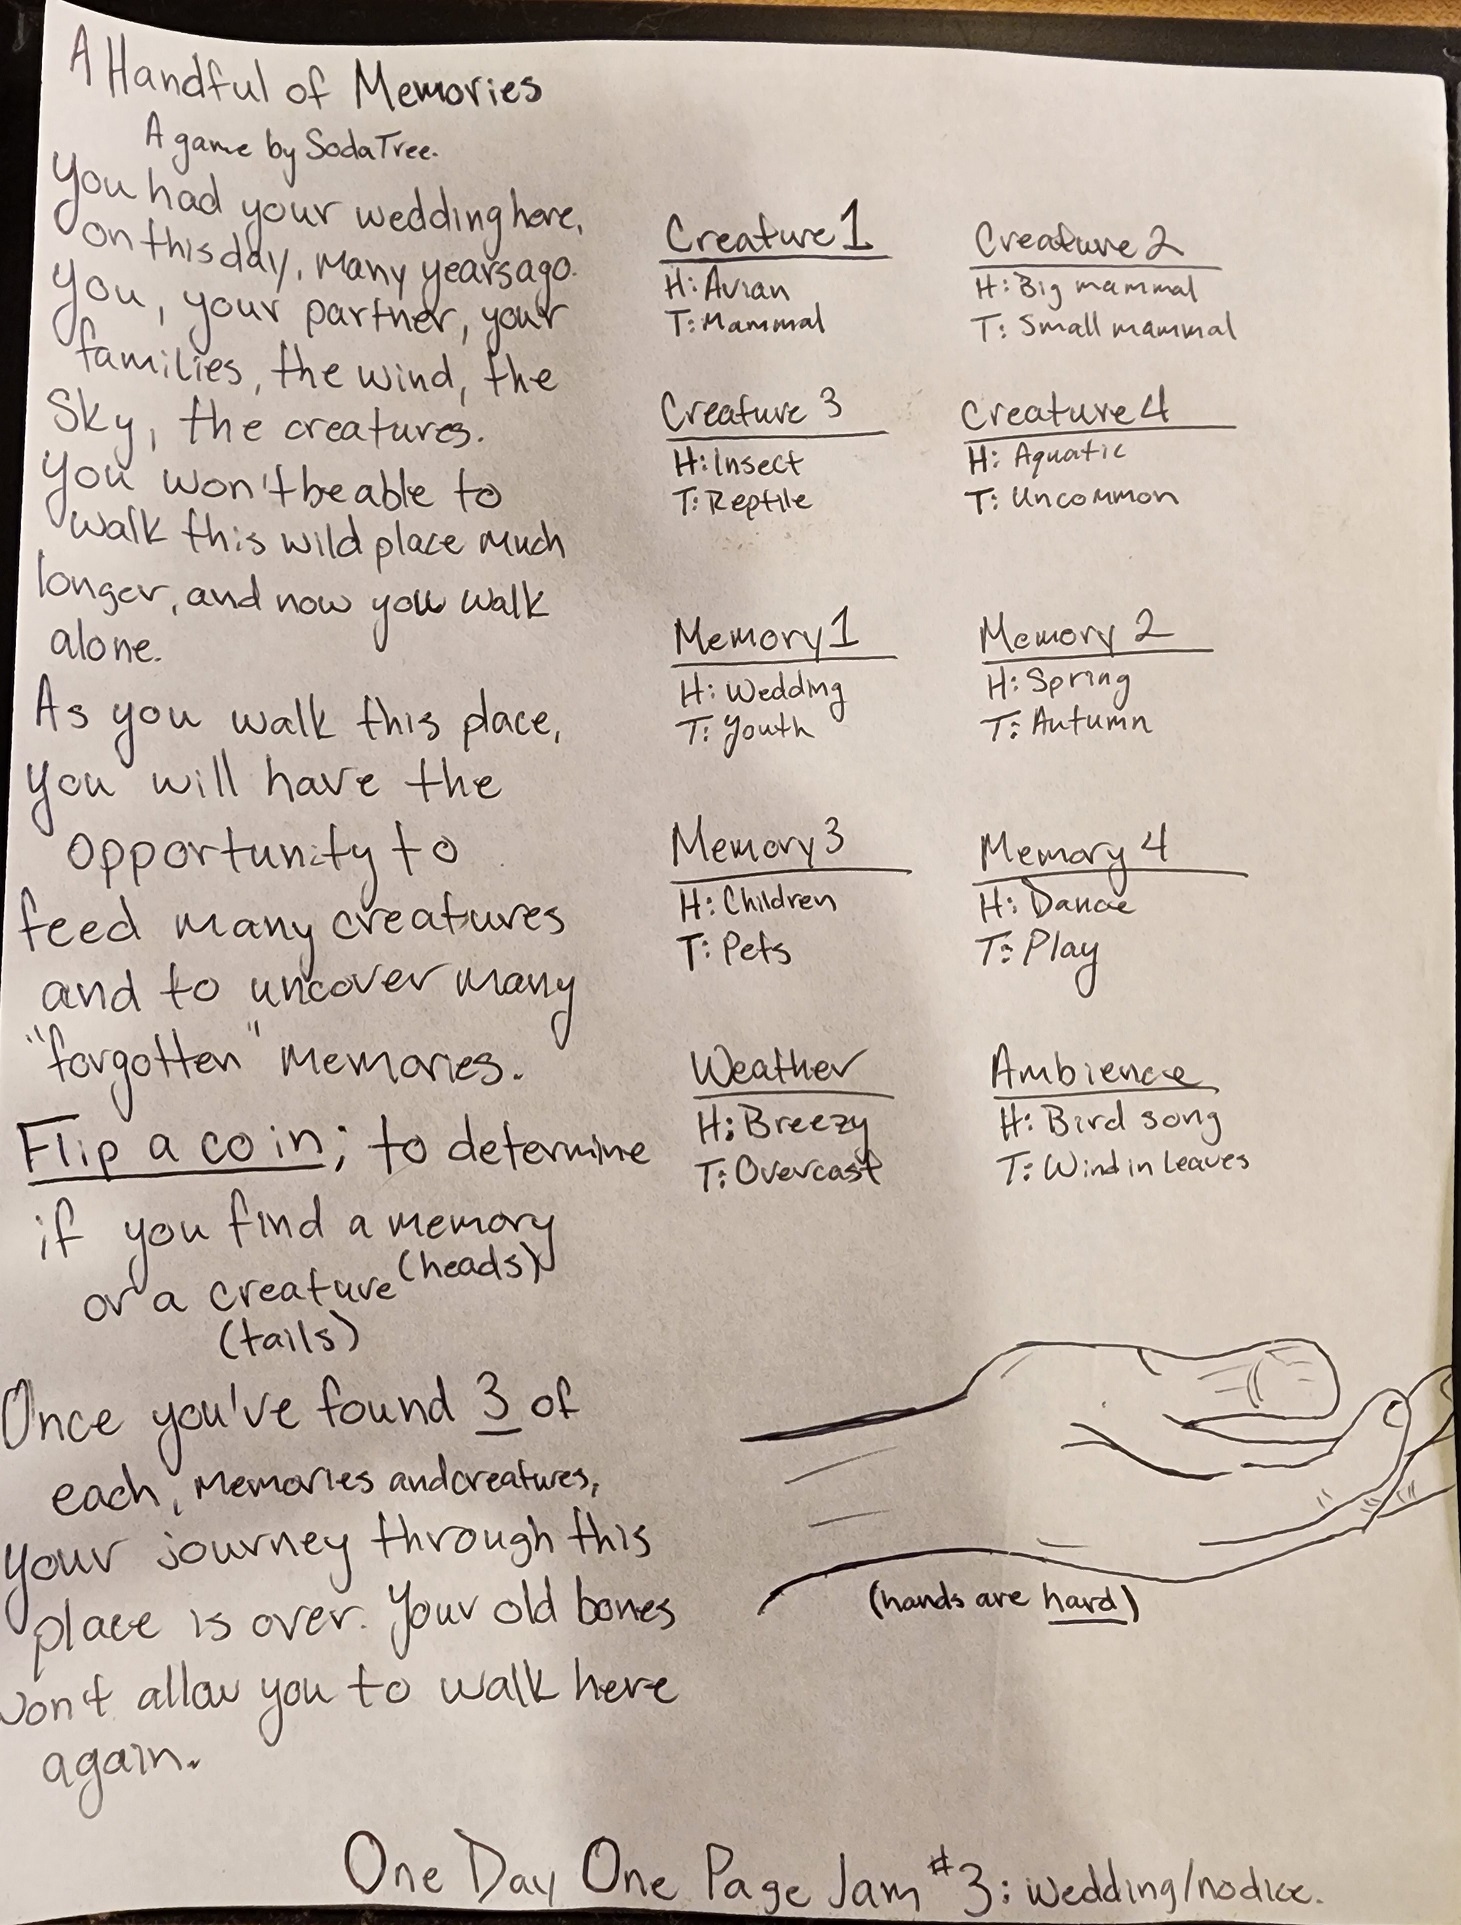 A Handful of Memories
A game by SodaTree.
You had your wedding here,
on this day, many years ago.
You, your partner, your
families, the wind, the
sky, the creatures.
You won't be able to
walk this wild place much
longer, and now you walk
alone.
As you walk this place,
you will have the
opportunity to
feed many creatures
and to uncover many
"forgotten" memories.
Flip a coin; to determine
if you find a memory
(heads)
or a creature
(tails)
Once you've found 3 of
each, memories and creatures,
your journey through this
place is over. Your old bones
won't allow you to walk here
again.
Creature 1
H: Avian
T: Mammal
Creature 2
H: Big mammal
T: Small mammal
Creature 3
H: Insect
T: Reptile
Creature 4
H: Aquatic
T: Uncommon
Memory 1
H: Wedding
T: Youth
Memory 2
H: Spring
T: Autumn
Memory 3
H: Children
T: Pets
Memory 4
H: Dance
T: Play
Weather
H: Breezy
T: Overcast
Ambience
H: Bird song
T: Wind in leaves
(hands are hard)
One Day One Page Jam #3: wedding/no dice.